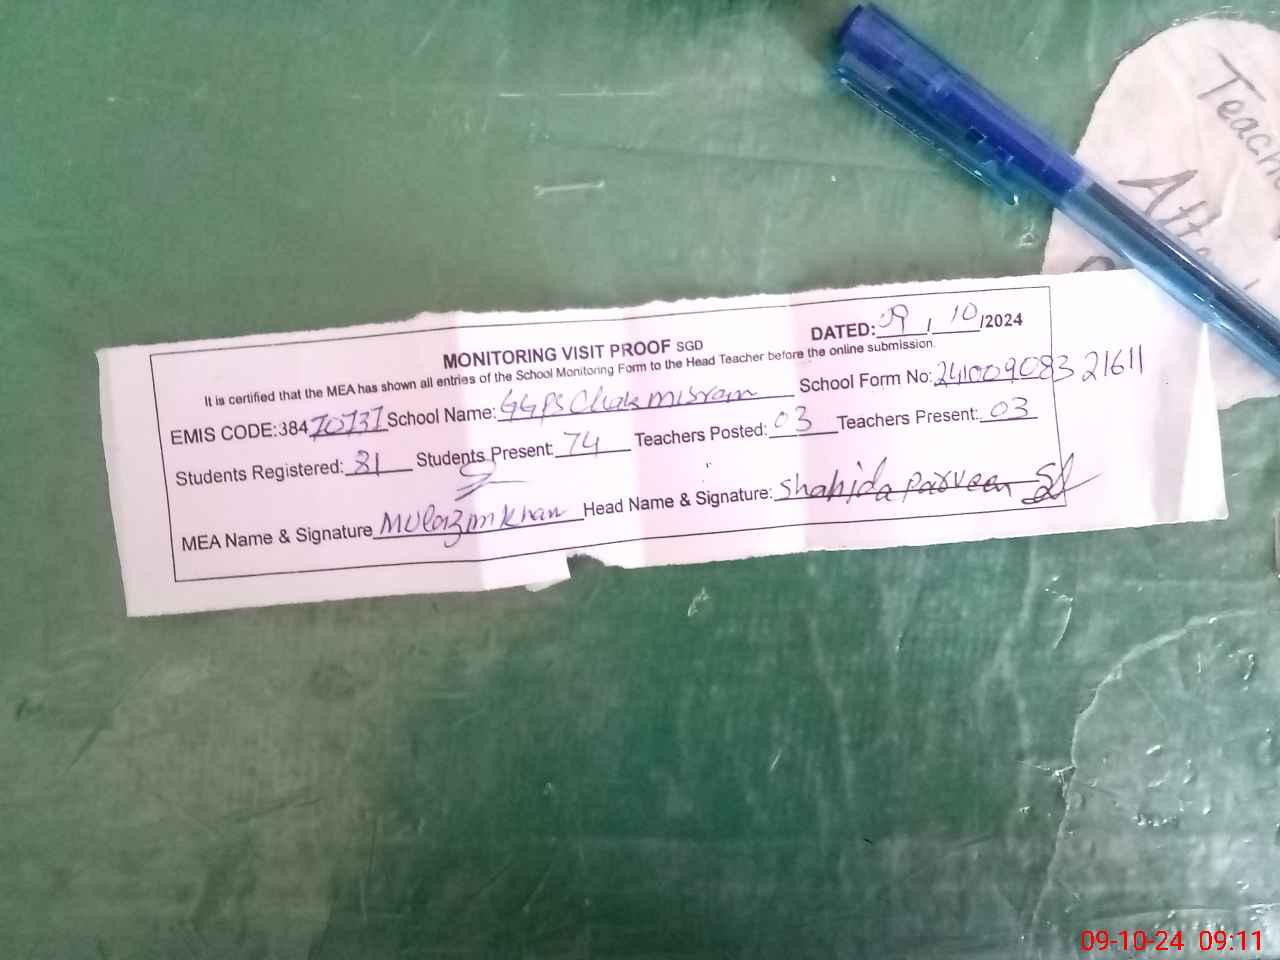 Teache
Atte
MONITORING VISIT PROOF SGD
DATED: 09 / 10 /2024
It is certified that the MEA has shown all entries of the School Monitoring Form to the Head Teacher before the online submission.
EMIS CODE:38470737 School Name: GGPS Chak misram School Form No: 24100908321611
Students Registered: 81 Students Present: 74 Teachers Posted: 03 Teachers Present: 03
MEA Name & Signature Mulazim Khan Head Name & Signature: Shahida Parveen
09-10-24 09:11